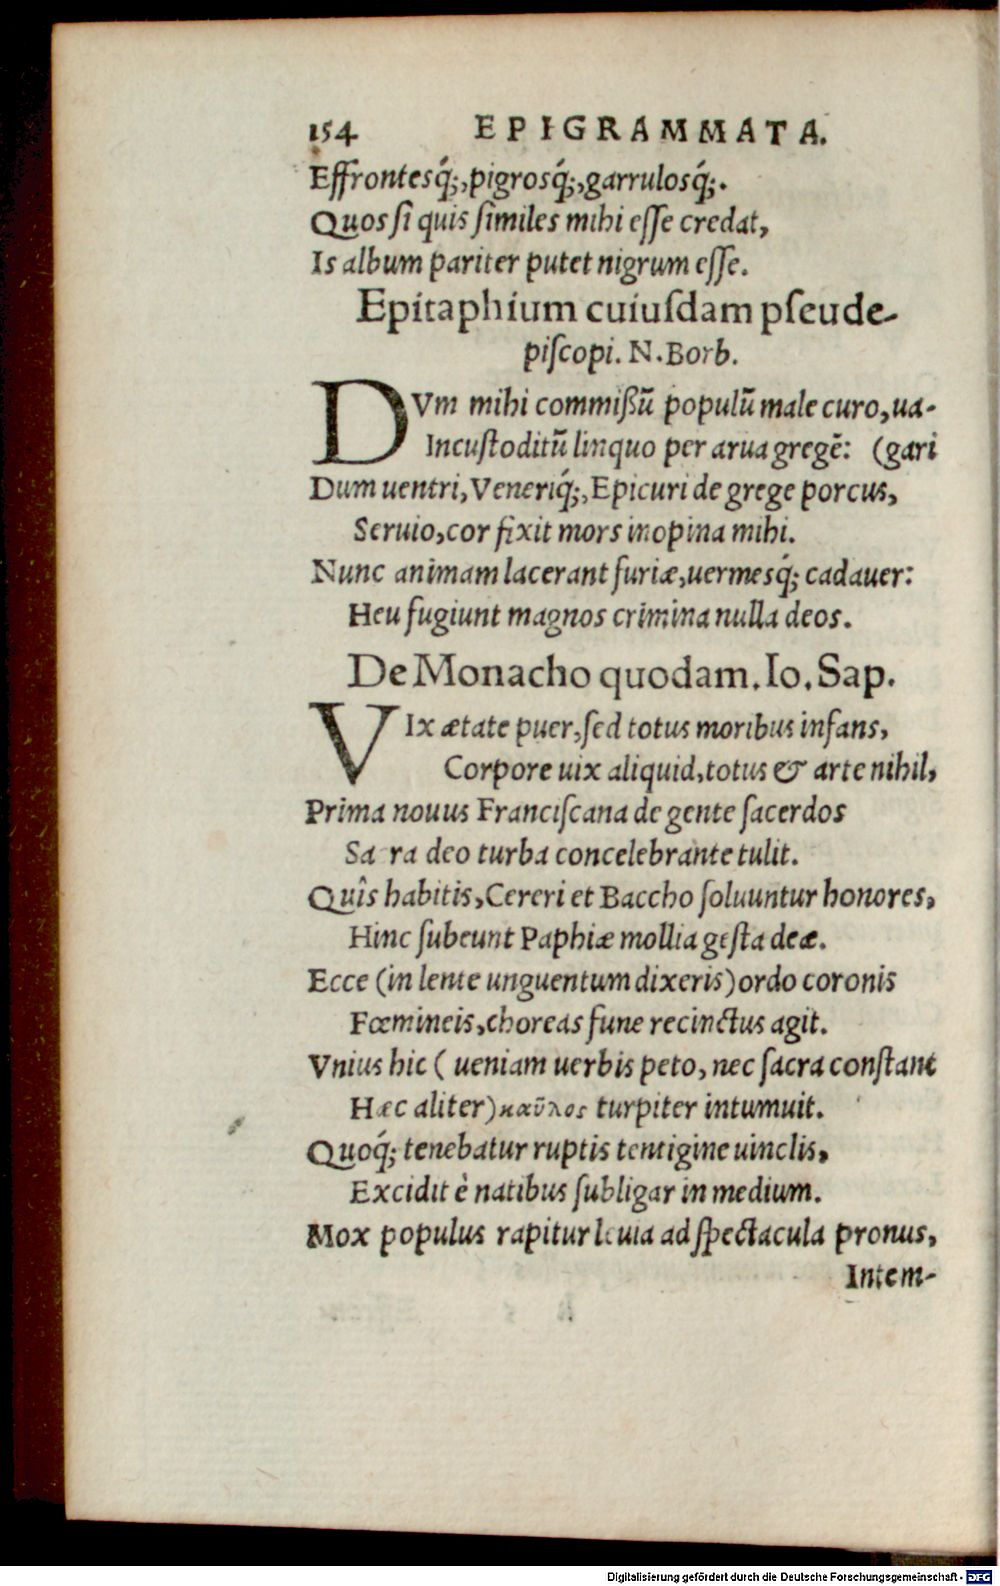 154 EPIGRAMMATA.
Effrontesq́;, pigrosq́;, garrulosq́;.
Quos ſi quis ſimiles mihi eſſe credat,
Is album pariter putet nigrum eſſe.
Epitaphium cuiuſdam pſeude-
piſcopi. N. Borb.
DVm mihi commiſſũ populũ male curo, ua-
Incuſtoditũ linquo per arua gregẽ: (gari
Dum uentri, Veneriq́;, Epicuri de grege porcus,
Seruio, cor fixit mors inopina mihi.
Nunc animam lacerant furiæ, uermesq́; cadauer:
Heu fugiunt magnos crimina nulla deos.
De Monacho quodam. Io. Sap.
VIx ætate puer, ſed totus moribus infans,
Corpore uix aliquid, totus & arte nihil,
Prima nouus Franciſcana de gente ſacerdos
Sa ra deo turba concelebrante tulit.
Quîs habitis, Cereri et Baccho ſoluuntur honores,
Hinc ſubeunt Paphiæ mollia geſta deæ.
Ecce (in lente unguentum dixeris) ordo coronis
Fœmineis, choreas fune recinctus agit.
Vnius hic ( ueniam uerbis peto, nec ſacra conſtant
Hæc aliter) καῦλος turpiter intumuit.
Quoq́; tenebatur ruptis tentigine uinclis,
Excidit è natibus ſubligar in medium.
Mox populus rapitur leuia ad ſpectacula pronus,
Intem-
Digitalisierung gefördert durch die Deutsche Forschungsgemeinschaft - DFG